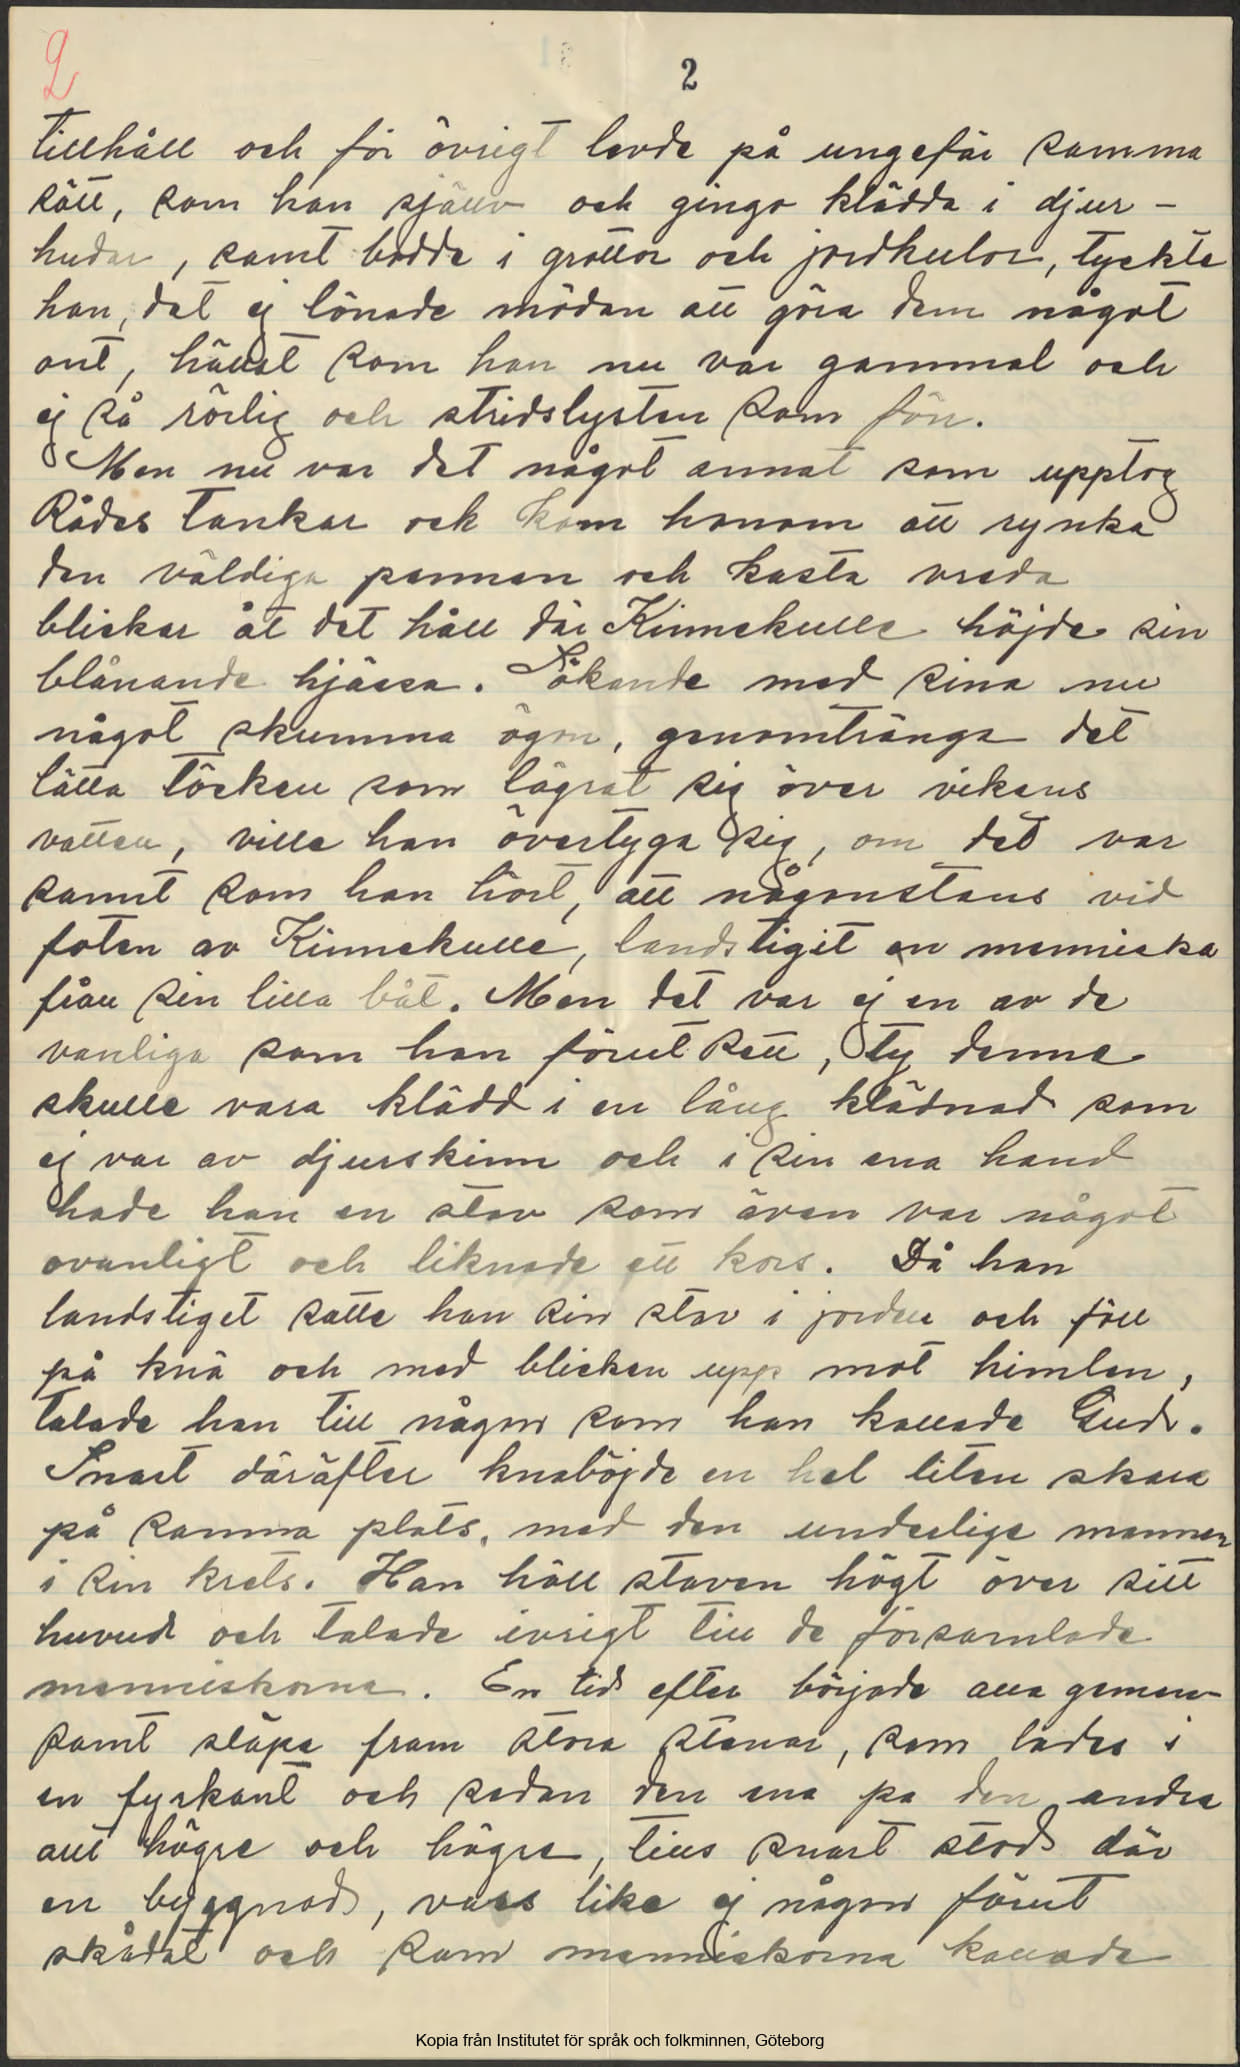 2
2
tillhåll och för övrigt levde på ungefär samma
sätt, som han själv och gingo klädda i djur-
hudar, samt bodde i grottor och jordkulor, tyckte
han, det ej lönade mödan att göra dem något
ont, hällst som han nu var gammal och
ej så rörlig och stridslysten som förr.
Men nu var det något annat som upptog
Rådes tankar och kom honom att rynka
den väldiga pannan och kasta vreda
blickar åt det håll där Kinnekulle höjde sin
blånande hjässa. Sökande med sina nu
något skumma ögon, genomtränga det
lätta töcken som lägrat sig över vikens
vatten, ville han övertyga sig, om det var
sannt som han hört, att någonstans vid
foten av Kinnekulle, landstigit en menniska
från sin lilla båt. Men det var ej en av de
vanliga som han förut sett, ty denne
skulle vara klädd i en lång klädnad som
ej var av djurskinn och i sin ena hand
hade han en stav som även var något
ovanligt och liknade ett kors. Då han
landstiget satte han sin stav i jorden och föll
på knä och med blicken upp mot himlen,
talade han till någon som han kallade Gud.
Snart däräfter knäböjde en hel liten skara
på samma plats, med den underlige mannen
i sin krets. Han höll staven högt över sitt
huvud och talade ivrigt till de församlade
menniskorna. En tid efter började alla gemen-
samt släpa fram stora stenar, som lades i
en fyrkant och sedan den ena pa den andra
allt högre och högre, tills snart stod där
en byggnad, vars like ej någon förut
skådat och som menniskorna kallade
Kopia från Institutet för språk och folkminnen, Göteborg